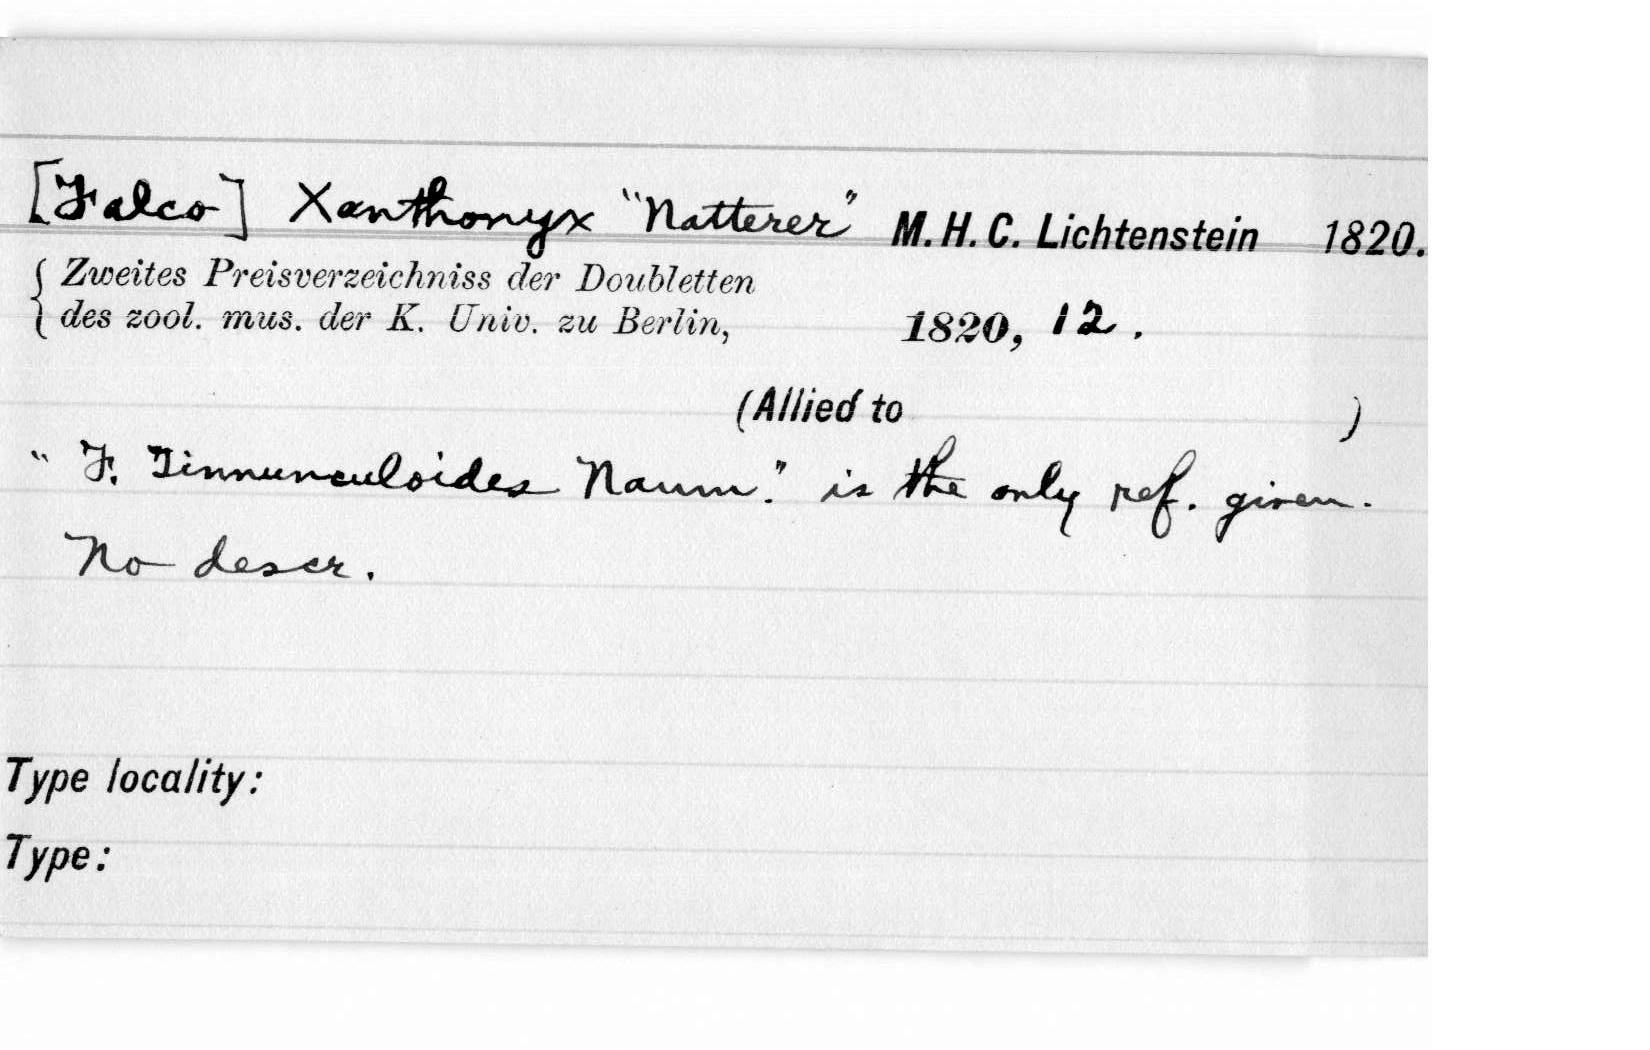 [Falco] Xanthonyx "Natterer" M. H. C. Lichtenstein 1820.
{ Zweites Preisverzeichniss der Doubletten
des zool. mus. der K. Univ. zu Berlin, 1820, 12.
(Allied to )
" F. Tinnunculoides Naum." is the only ref. given.
No descr.
Type locality:
Type: